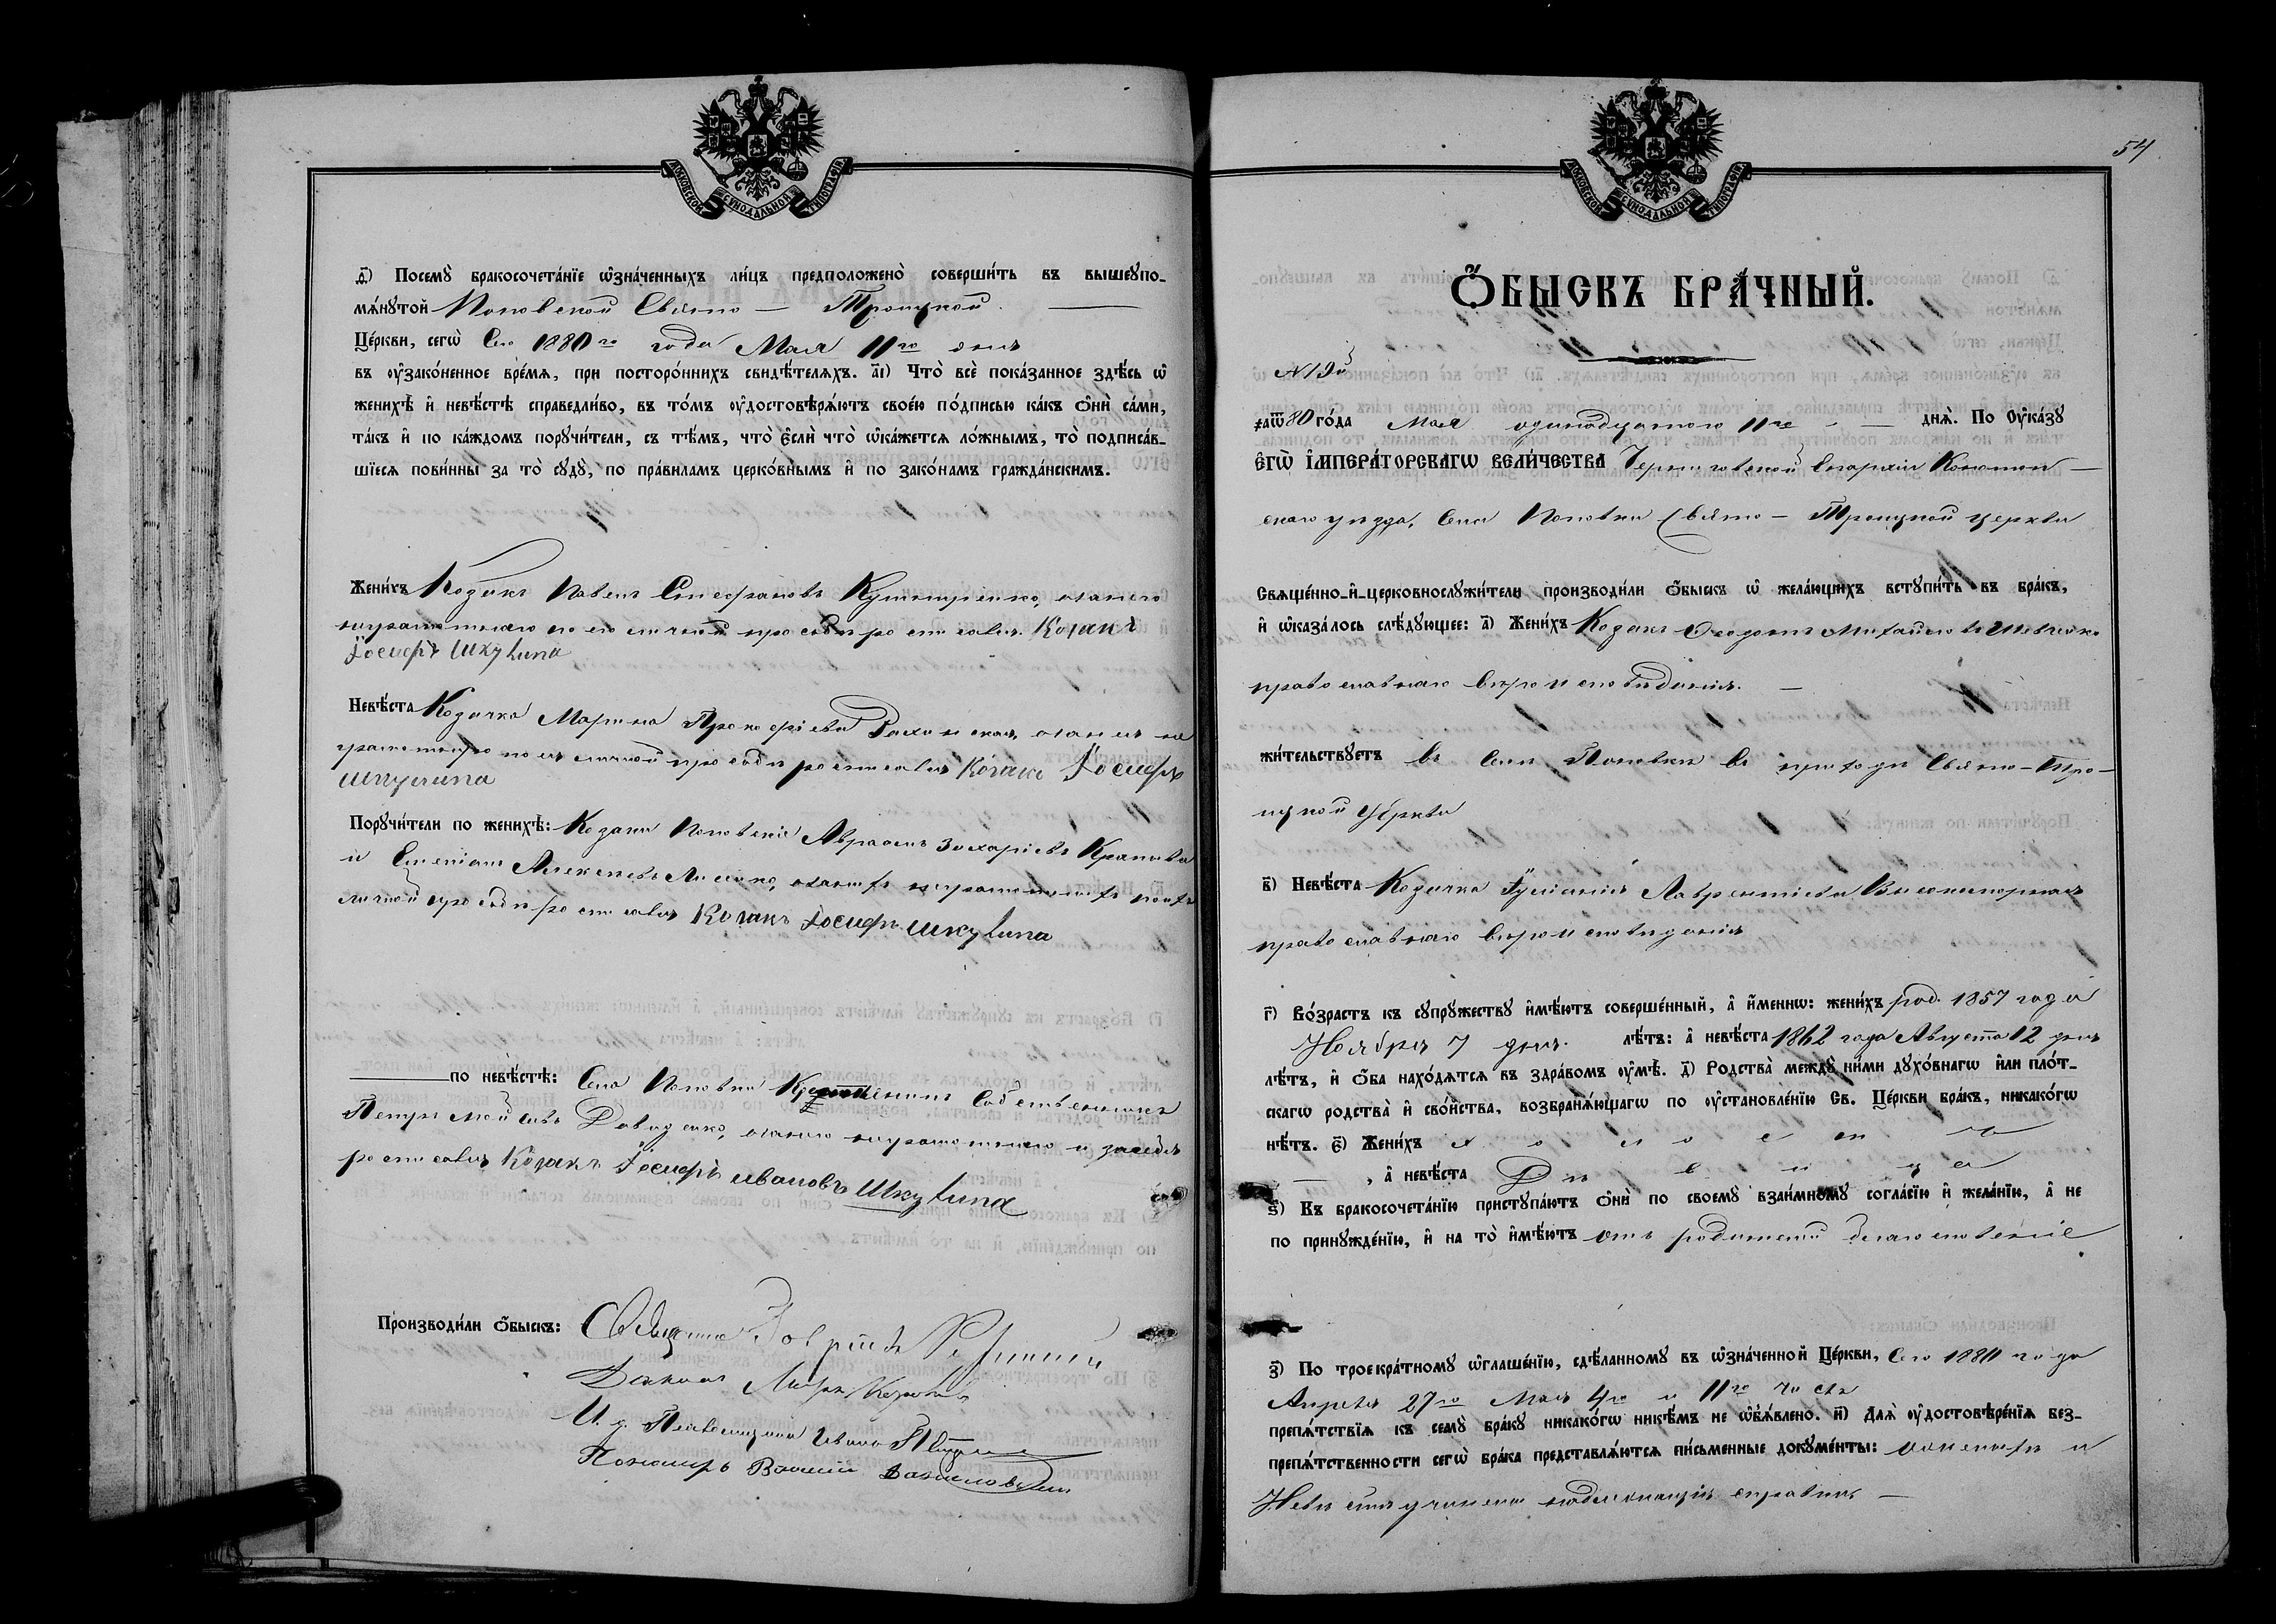 МОСКОВСКОЙ СѴНОДАЛЬНОЙ ТИПОГРАФІИ
д҃) Посемꙋ̀ бракосочета́нїе ѡ҆зна́ченныхъ ли́цъ предположено̀ соверши́ть въ вышеꙋпо-
мѧ́нꙋтой Поповской Свято – Троицкой
Це́ркви, сегѡ̀ Сего 1880го года Мая 11го дня
въ ᲂу҆зако́ненное вре́мѧ, при посторо́ннихъ свидѣ́телѧхъ. а҃і) Что̀ всѐ пока́занное здѣ́сь ѡ҆
женихѣ̀ и҆ невѣ́стѣ справедли́во, въ то́мъ ᲂу҆достовѣрѧ́ютъ свое́ю по́дписью ка́къ ѻ҆нѝ са́ми,
та́къ и҆ по ка́ждомъ порꙋчи́тели, съ тѣ́мъ, что̀ є҆́сли что̀ ѡ҆ка́жетсѧ ло́жнымъ, то̀ подписа́в-
шїесѧ пови́нны за то̀ сꙋдꙋ̀, по пра́виламъ церко́внымъ и҆ по зако́намъ гражда́нскимъ.
Жени́хъ Козакъ Павелъ Стефановъ оханого
неграмотнаго по его личной просьбѣ росписался Козакъ
Іосифъ Шкулипа
Невѣ́ста Козачка Марина Прокофіева не
грамотную по ея личной просьбѣ росписался Козакъ Іосифъ
Шкулипа
Порꙋчи́тели по женихѣ̀: Козаки Поповскіе Авраамъ Захаріевъ
и Алексѣевъ неграмотныхъ по ихъ
личной просьбѣ росписался Козакъ Іосифъ Шкулипа
по невѣ́стѣ: Села Поповки Собственникъ
Петръ Давиденко, неграмотнаго и за себя
росписался Козакъ Іосифъ Ивановъ Шкулипа
Производи́ли ѻ҆́быскъ: Священникъ
Діаконъ
И. д. Псаломщика Иванъ
Пономарь Василій
54
МОСКОВСКОЙ СѴНОДАЛЬНОЙ ТИПОГРАФІИ
Ѻ҆́БЫСКЪ БРА́ЧНЫЙ.
№ 19й
҂аѿ80 го́да Мая одинадцатого 11го днѧ̀. По Оу҆ка́зꙋ
Є҆ГѠ̀ І҆МПЕРА́ТОРСКАГѠ ВЕЛИ́ЧЕСТВА Черниговской Епархіи Конотоп –
скаго уѣзда, Села Поповки Свято – Троицкой церкви
Свѧще́нно-и҆-церковнослꙋжи́тели производи́ли ѻ҆́быскъ ѡ҆ жела́ющихъ встꙋпи́ть въ бра́къ,
и҆ ѡ҆каза́лось слѣ́дꙋющее: а҃) Жени́хъ Козакъ Ѳеодоръ Михайловъ Шевченко
православнаго вѣроисповѣданія. –
жи́тельствꙋетъ въ селѣ Поповкѣ въ приходѣ Свято – Тро –
ицкой Церкви
в҃) Невѣ́ста Козачка Іуліанія Лаврентіева
православнаго вѣроисповѣданія
г҃) Во́зрастъ къ сꙋпрꙋ́жествꙋ и҆мѣ́ютъ соверше́нный, а҆ и҆́менно: жени́хъ род. 1857 года
Ноября 7 дня. лѣ́тъ: а҆ невѣ́ста 1862 года Августа 12 дня
лѣ́тъ, и҆ ѻ҆́ба нахо́дѧтсѧ въ здра́вомъ ᲂу҆мѣ̀. д҃) Родства̀ междꙋ̀ ни́ми дꙋхо́внагѡ и҆ли пло́т-
скагѡ родства̀ и҆ сво́йства, возбранѧ́ющагѡ по ᲂу҆становле́нїю Св. Це́ркви бра́къ, никако́гѡ
нѣ́тъ. є҃) Жени́хъ х о л о с т ъ
, а҆ невѣ́ста Д ѣ в и ц а
ѕ҃) Къ бракосочета́нїю пристꙋпа́ютъ ѻ҆нѝ по своемꙋ̀ взаи́мномꙋ согла́сїю и҆ жела́нїю, а҆ не
по принꙋжде́нїю, и҆ на то̀ и҆мѣ́ютъ отъ родителей благословеніе
з҃) По троекра́тномꙋ ѡ҆глаше́нїю, сдѣ́ланномꙋ въ ѡ҆зна́ченной Це́ркви, сего 1880 года
Апрѣля 27го Мая 4го и 11го числъ
препѧ́тствїѧ къ семꙋ̀ бра́кꙋ никако́гѡ никѣ́мъ не ѡ҆б̾ѧ́влено. и҃) Длѧ̀ ᲂу҆достовѣре́нїѧ без-
препѧ́тственности сегѡ̀ бра́ка представлѧ́ютсѧ пи́сьменные докꙋме́нты: о женихѣ и
Невѣстѣ учинена надлежащая справка –